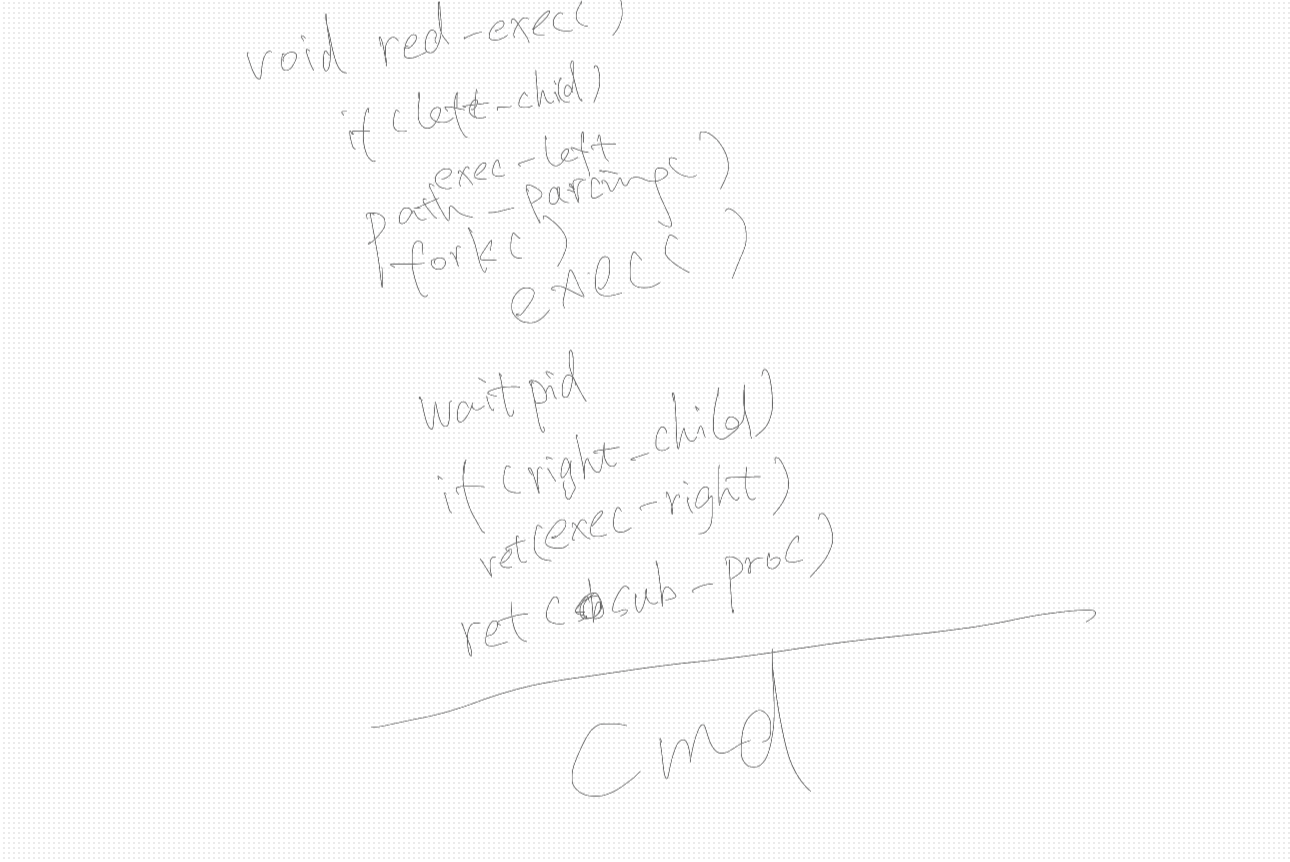 void red-exec()
if (left-child)
exec-left
path-parcing()
fork()
exec()
waitpid
if (right-child)
ret(exec-right)
ret(sub-proc)
cmd